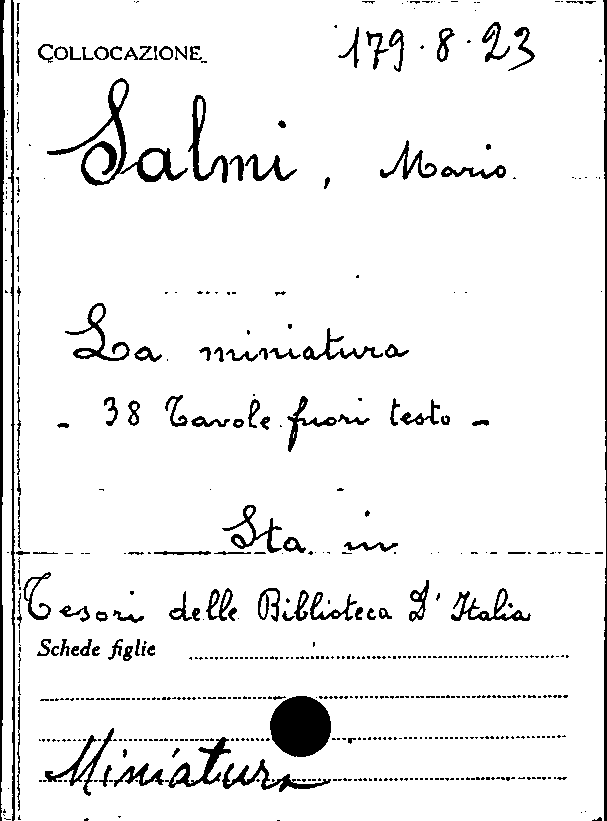 COLLOCAZIONE 179.8.23
Salmi, Mario
La miniatura
- 38 Tavole fuori testo -
Sta in
Tesori delle Biblioteca D'Italia
Schede figlie
Miniatura